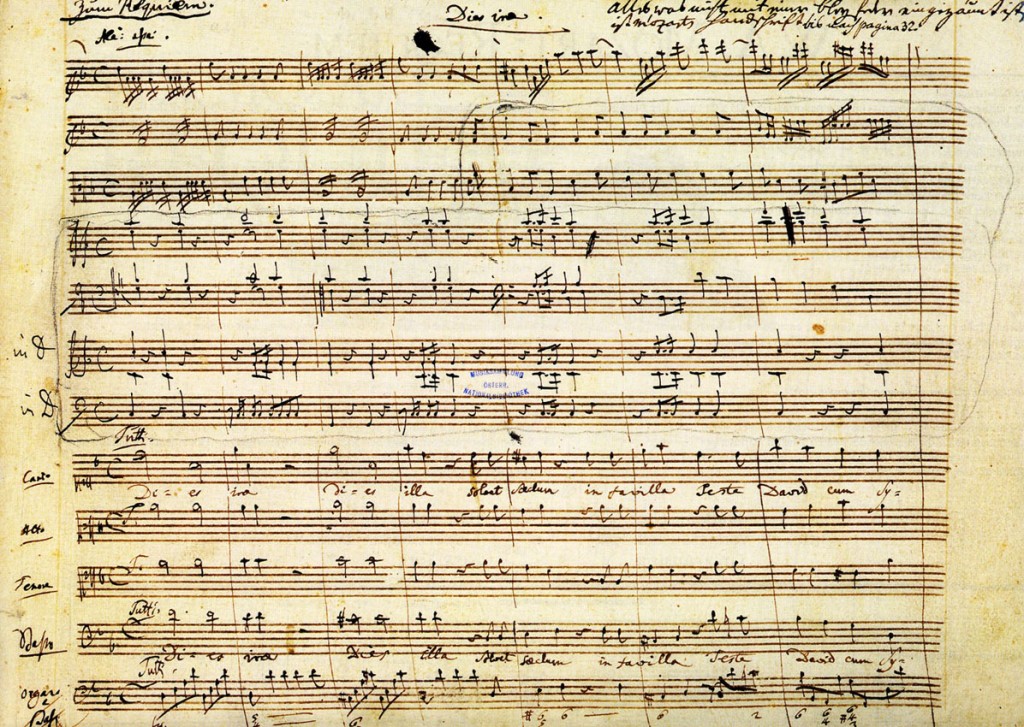 Zum Requiem.
Dies irae.
Alles was nicht mit einer bley feder eingezäumt ist,
ist Mozarts Handschrift bis auf pagina 32.
All: assai.
in D
in D
MUSIKSAMMLUNG
ÖSTERR.
NATIONALBIBLIOTHEK
Tutti.
Canto
Di = es irae di = es illa solvet saeclum in favilla Teste David cum Sy =
Alto
T.
Tenore
T.
Tutti.
Basso
Di = es irae Dies illa solvet saeclum in favilla Teste David cum Sy =
Tutti
Organo
Bassi
6 6 2 6